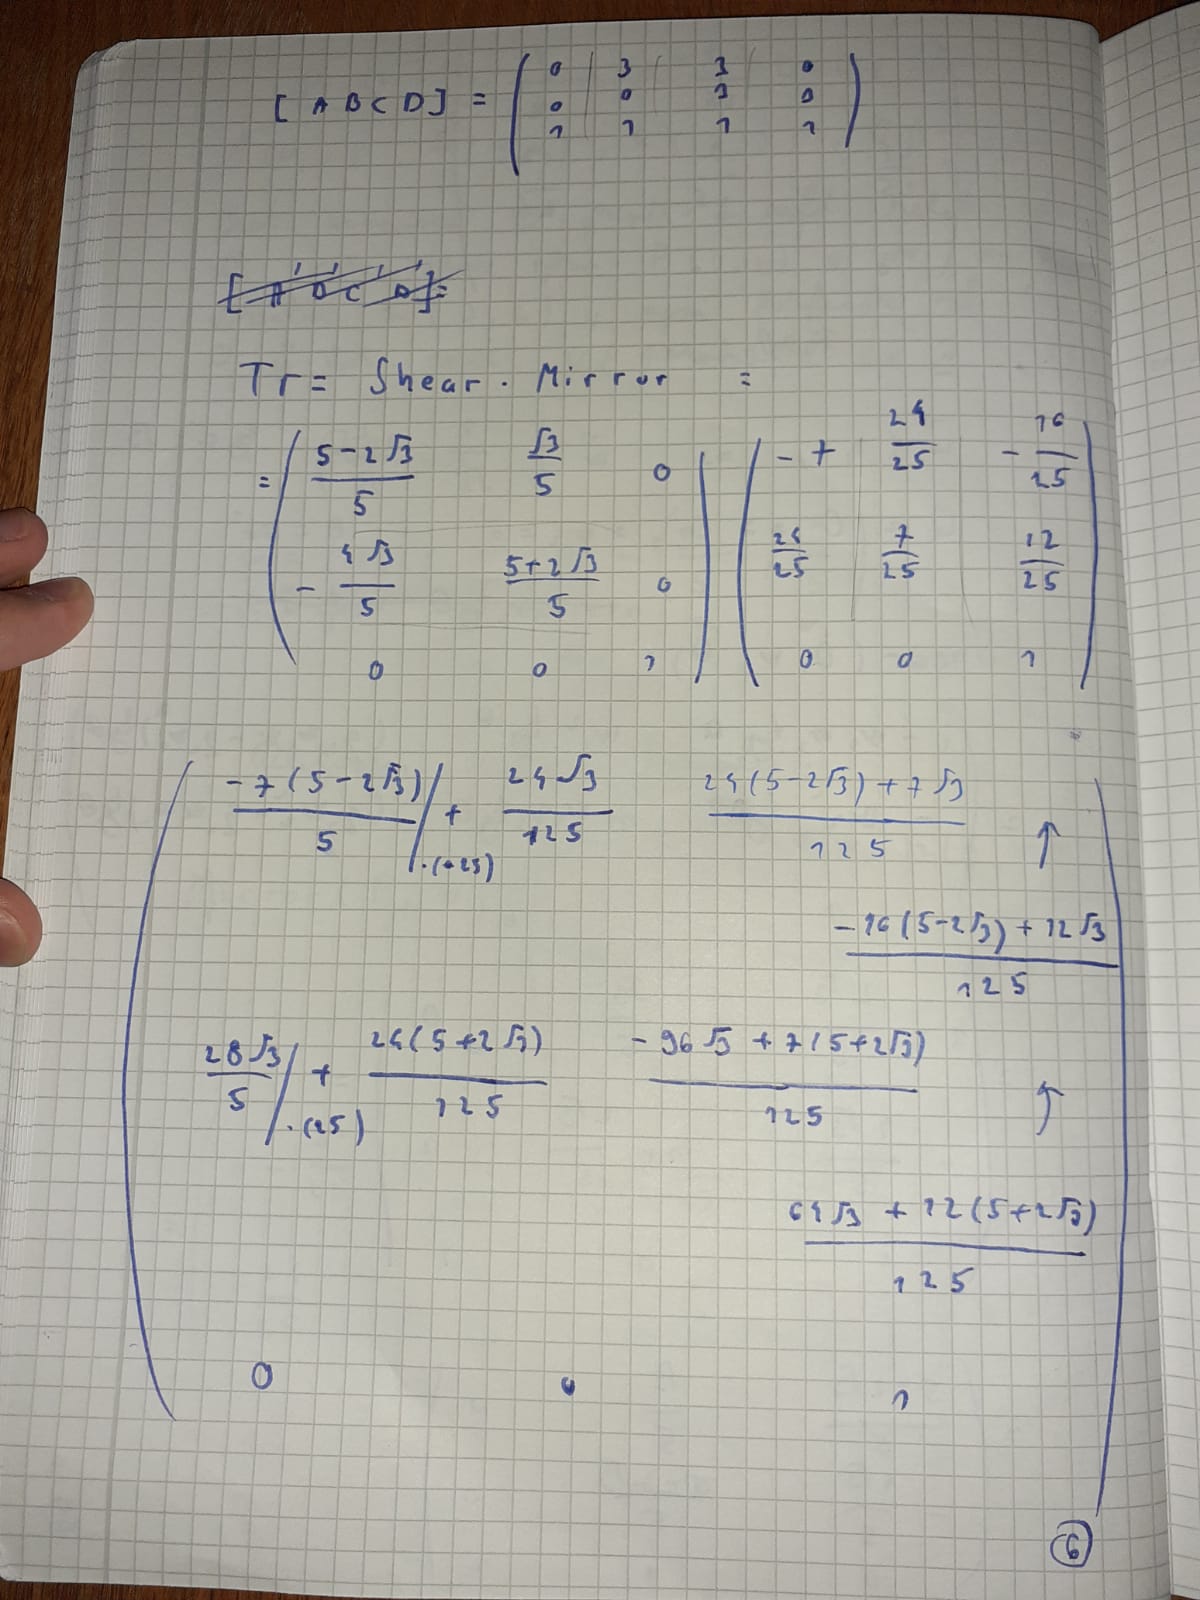 [ A B C D ] = ( 0 3 3 0
0 0 3 0
1 1 1 1 )
[ A' B' C' D' ] =
Tr = Shear . Mirror =
= ( (5-2√3)/5 √3/5 0 ) ( -7 24/25 -16/25 )
( -4√3/5 (5+2√3)/5 0 ) ( 24/25 7/25 12/25 )
( 0 0 1 ) ( 0 0 1 )
=
-7(5-2√3)/5 /·(·25) + 24√3/125 (24(5-2√3)+7√3)/125 ↑
(-16(5-2√3)+12√3)/125
28√3/5 /·(25) + 24(5+2√3)/125 (-96√3+7(5+2√3))/125 ↑
(64√3+12(5+2√3))/125
0 0 1
6